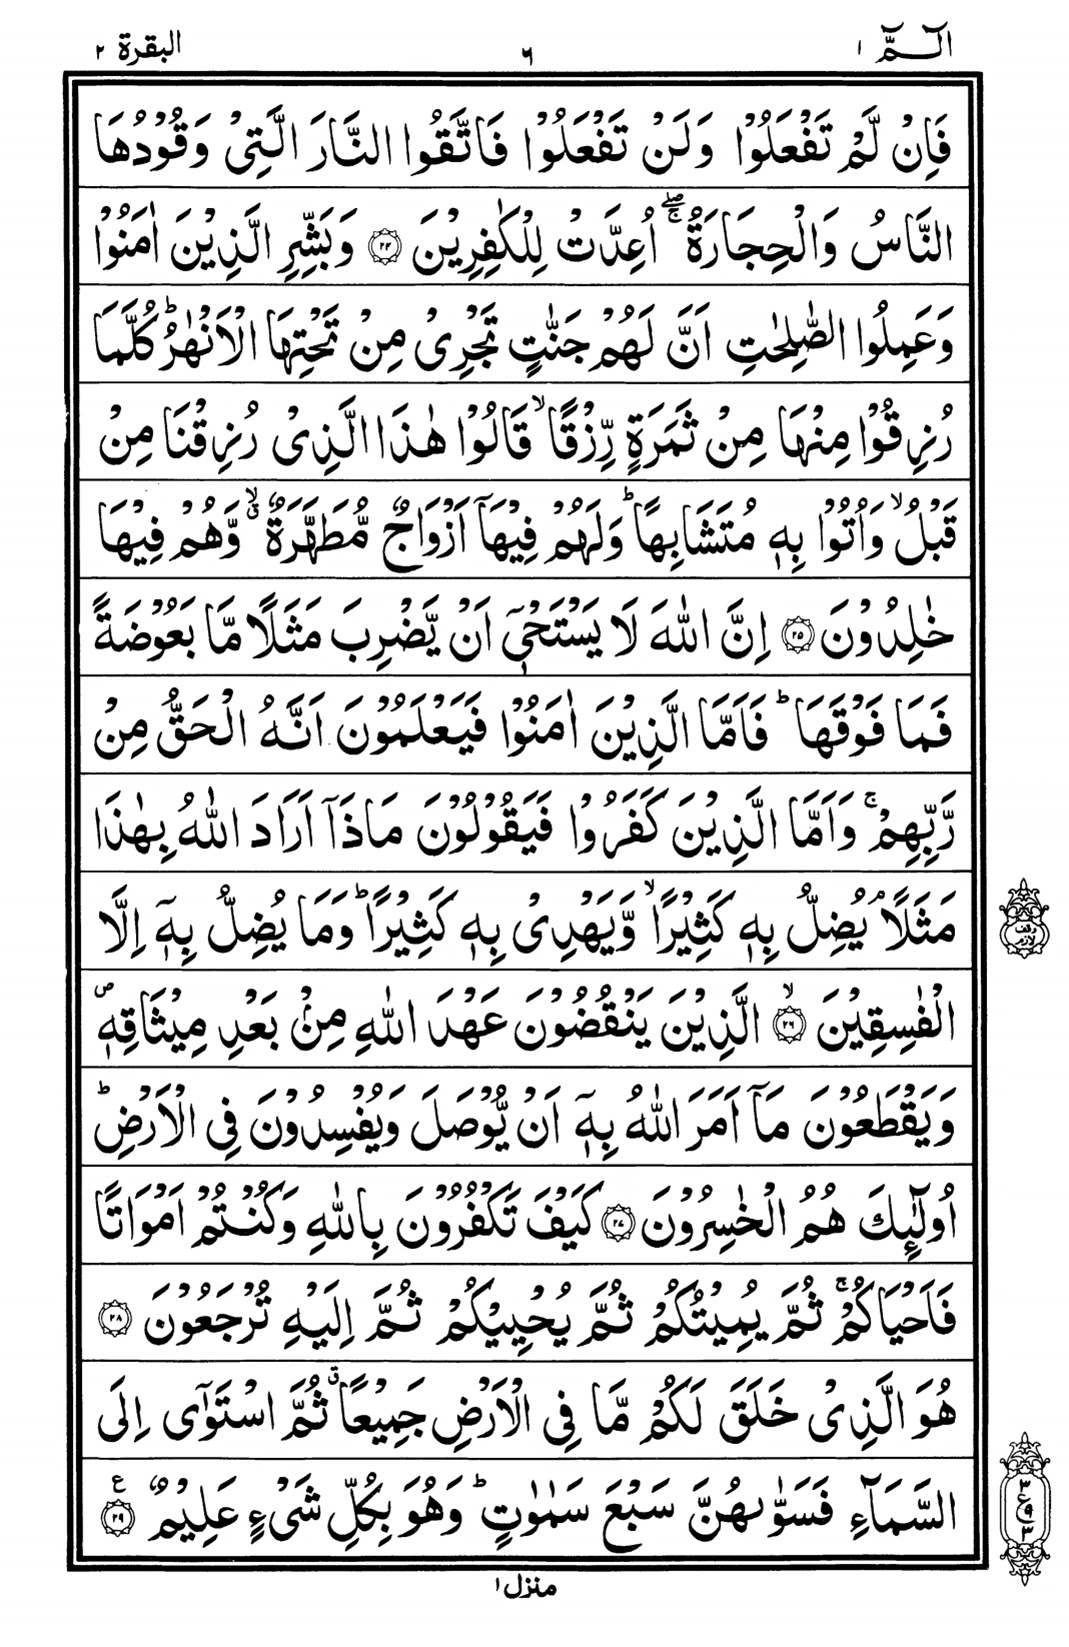 الٓـمّٓ ۱ ٦ البقرة ۲
فَاِنْ لَّمْ تَفْعَلُوْا وَلَنْ تَفْعَلُوْا فَاتَّقُوا النَّارَ الَّتِىْ وَقُوْدُهَا
النَّاسُ وَالْحِجَارَةُ ۖۚ اُعِدَّتْ لِلْكٰفِرِيْنَ ﴿۲۴﴾ وَبَشِّرِ الَّذِيْنَ اٰمَنُوْا
وَعَمِلُوا الصّٰلِحٰتِ اَنَّ لَهُمْ جَنّٰتٍ تَجْرِىْ مِنْ تَحْتِهَا الْاَنْهٰرُ ؕ كُلَّمَا
رُزِقُوْا مِنْهَا مِنْ ثَمَرَةٍ رِّزْقًا ۙ قَالُوْا هٰذَا الَّذِىْ رُزِقْنَا مِنْ
قَبْلُ ۙ وَاُتُوْا بِهٖ مُتَشَابِهًا ؕ وَلَهُمْ فِيْهَآ اَزْوَاجٌ مُّطَهَّرَةٌ ۙۗ وَّهُمْ فِيْهَا
خٰلِدُوْنَ ﴿۲۵﴾ اِنَّ اللّٰهَ لَا يَسْتَحْىٖٓ اَنْ يَّضْرِبَ مَثَلًا مَّا بَعُوْضَةً
فَمَا فَوْقَهَا ؕ فَاَمَّا الَّذِيْنَ اٰمَنُوْا فَيَعْلَمُوْنَ اَنَّهُ الْحَقُّ مِنْ
رَّبِّهِمْ ۚ وَاَمَّا الَّذِيْنَ كَفَرُوْا فَيَقُوْلُوْنَ مَاذَآ اَرَادَ اللّٰهُ بِهٰذَا
مَثَلًا ۘ يُضِلُّ بِهٖ كَثِيْرًا ۙ وَّيَهْدِىْ بِهٖ كَثِيْرًا ؕ وَمَا يُضِلُّ بِهٖٓ اِلَّا
وقف لازم
الْفٰسِقِيْنَ ۙ﴿۲۶﴾ الَّذِيْنَ يَنْقُضُوْنَ عَهْدَ اللّٰهِ مِنْۢ بَعْدِ مِيْثَاقِهٖ ص
وَيَقْطَعُوْنَ مَآ اَمَرَ اللّٰهُ بِهٖٓ اَنْ يُّوْصَلَ وَيُفْسِدُوْنَ فِى الْاَرْضِ ؕ
اُولٰٓئِكَ هُمُ الْخٰسِرُوْنَ ﴿۲۷﴾ كَيْفَ تَكْفُرُوْنَ بِاللّٰهِ وَكُنْتُمْ اَمْوَاتًا
فَاَحْيَاكُمْ ۚ ثُمَّ يُمِيْتُكُمْ ثُمَّ يُحْيِيْكُمْ ثُمَّ اِلَيْهِ تُرْجَعُوْنَ ﴿۲۸﴾
هُوَ الَّذِىْ خَلَقَ لَكُمْ مَّا فِى الْاَرْضِ جَمِيْعًا ۗ ثُمَّ اسْتَوٰٓى اِلَى
السَّمَآءِ فَسَوّٰىهُنَّ سَبْعَ سَمٰوٰتٍ ؕ وَهُوَ بِكُلِّ شَىْءٍ عَلِيْمٌ ﴿۲۹﴾ ع
۳
ع ۹
۳
منزل ۱